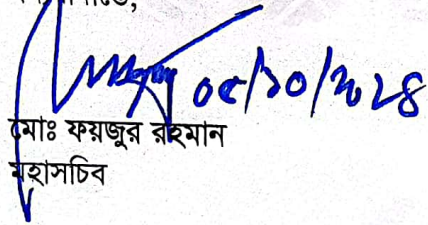 ০৫/১০/২০২৪
মোঃ ফয়জুর রহমান
মহাসচিব